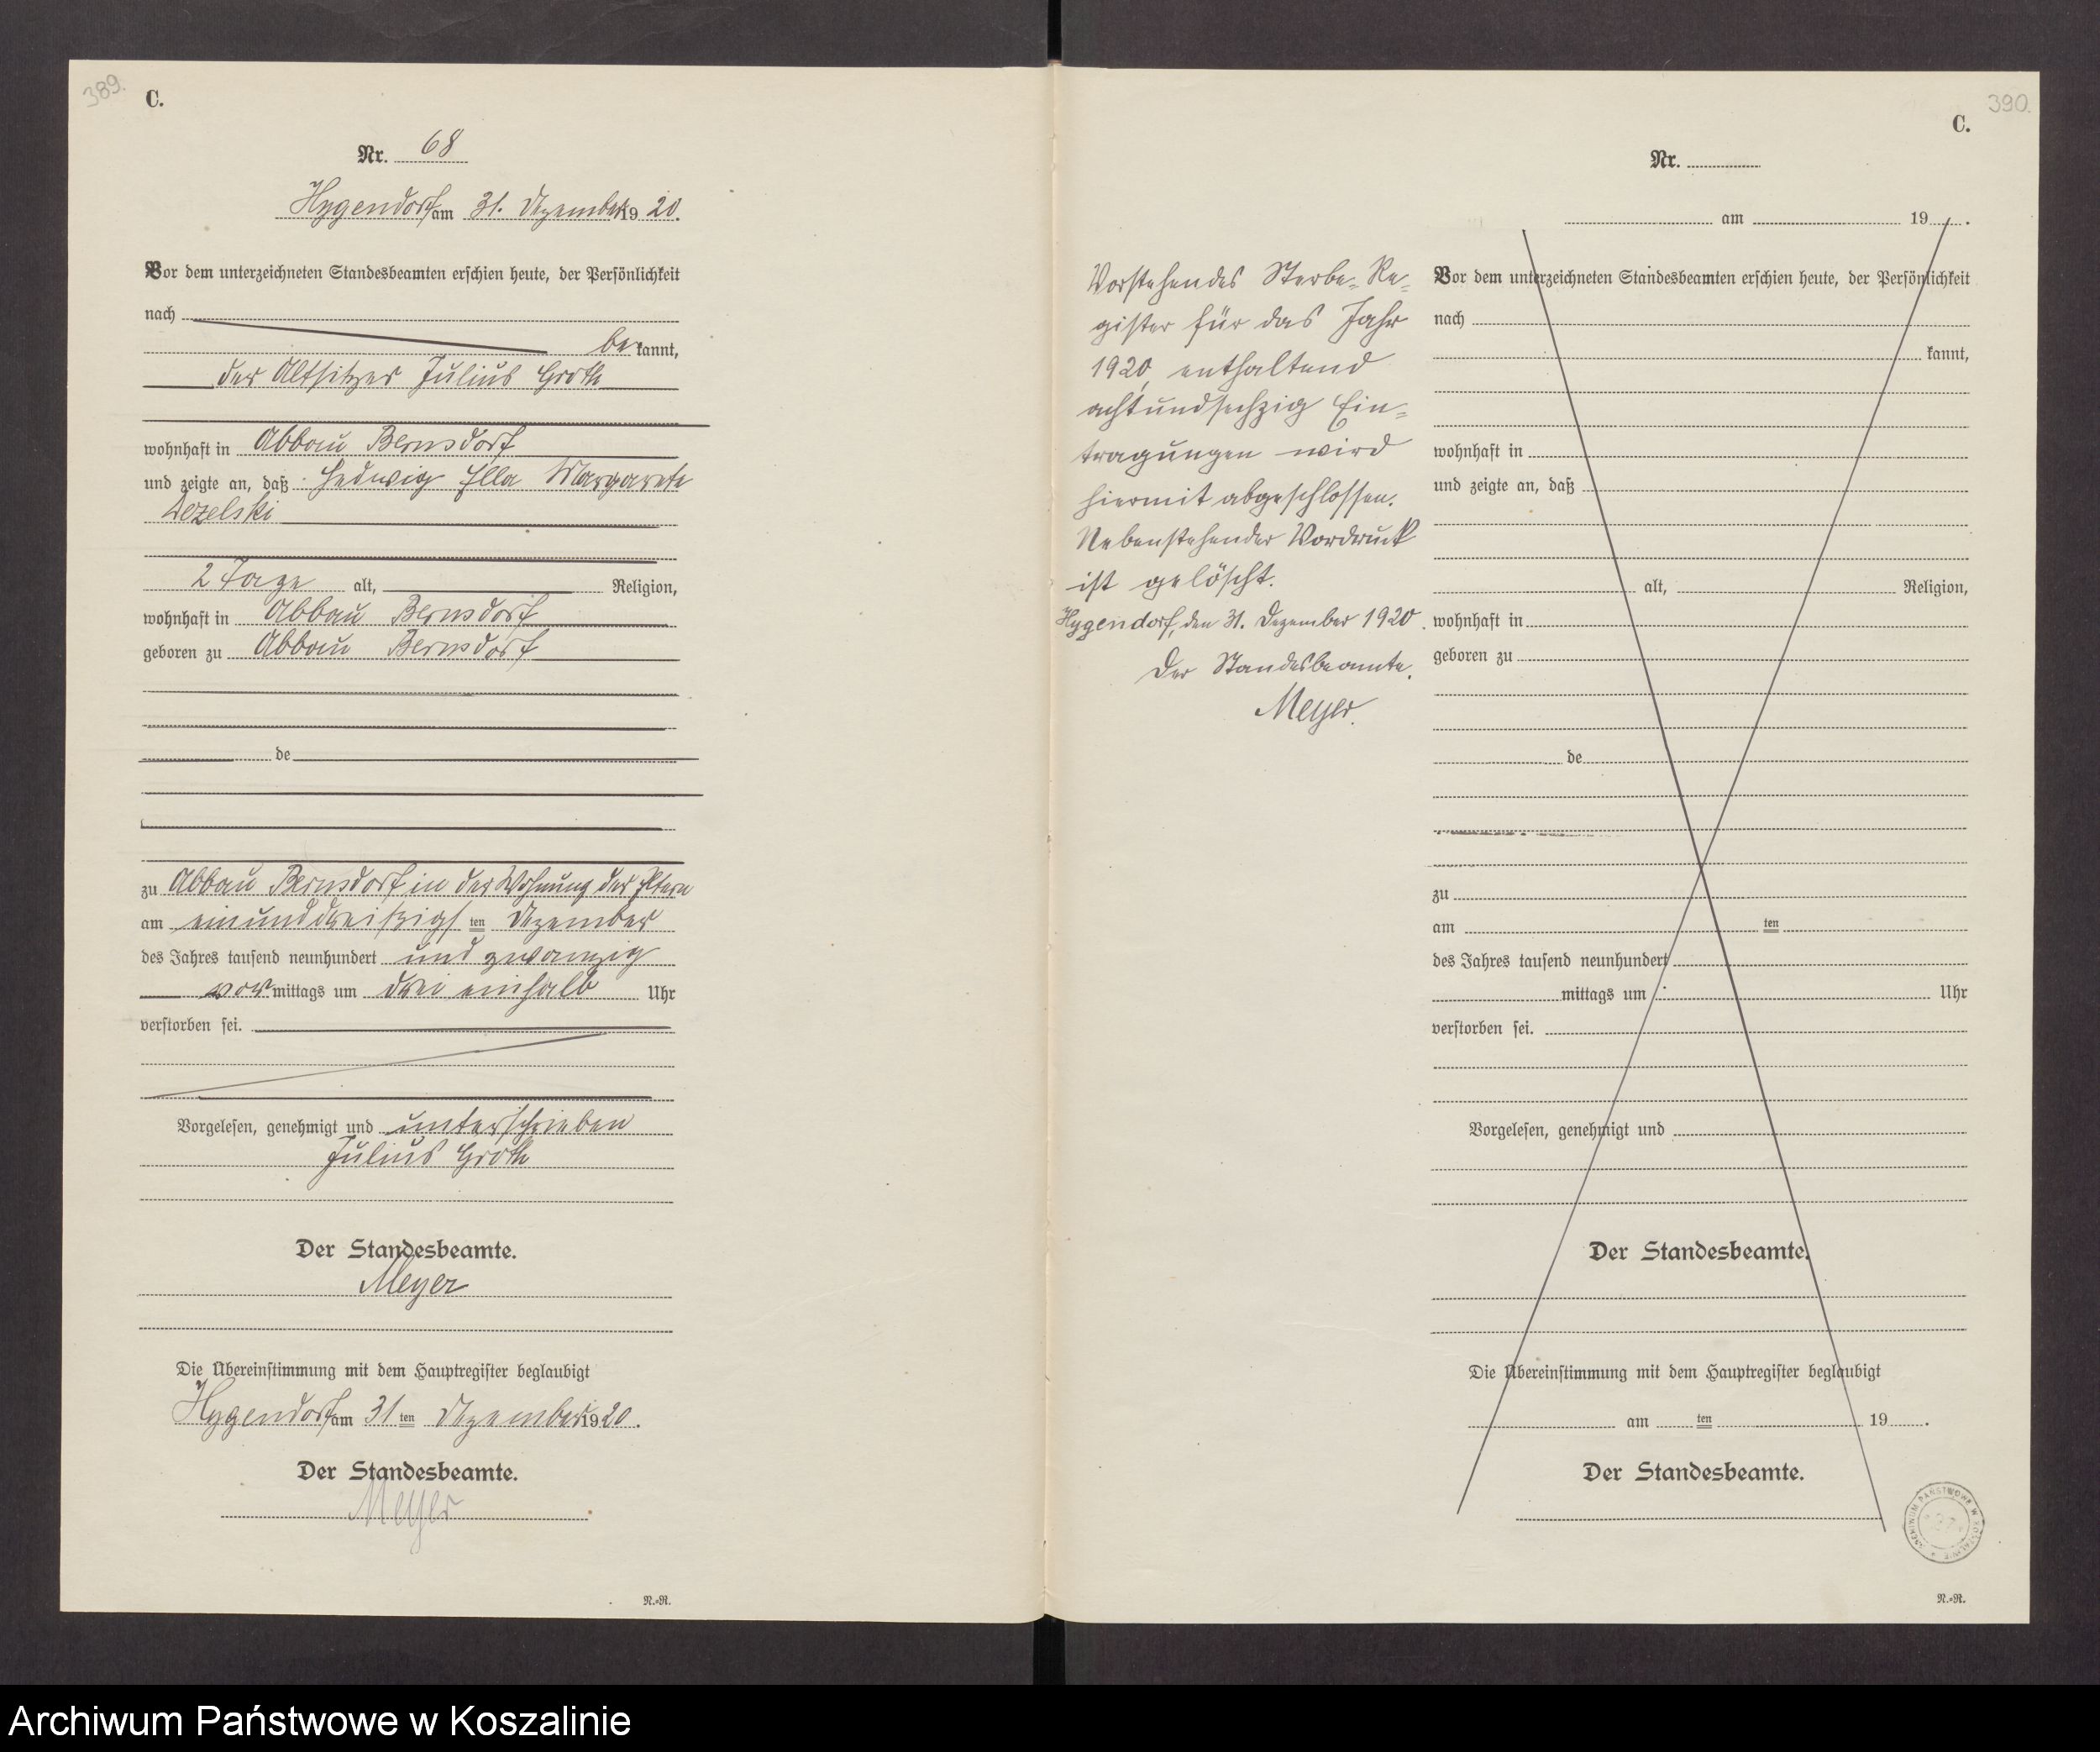 389.
C.
Nr. 68
Hygendorf am 31. Dezember 1920.
Vor dem unterzeichneten Standesbeamten erschien heute, der Persönlichkeit
nach
be kannt,
der Altsitzer Julius Groth
wohnhaft in Abbau Bernsdorf
und zeigte an, daß Hedwig Ella Margarete
2 Tage alt, Religion,
wohnhaft in Abbau Bernsdorf
geboren zu Abbau Bernsdorf
de
zu Abbau Bernsdorf in der Wohnung der Eltern
am einunddreißigsten Dezember
des Jahres tausend neunhundert und zwanzig
vor mittags um drei einhalb Uhr
verstorben sei.
Vorgelesen, genehmigt und unterschrieben
Julius Groth
Der Standesbeamte.
Meyer
Die Übereinstimmung mit dem Hauptregister beglaubigt
Hygendorf am 31 ten Dezember 1920.
Der Standesbeamte.
Meyer
N.=R.
390.
C.
Vorstehendes Sterbe=Re=
gister für das Jahr
1920, enthaltend
achtundsechzig Ein=
tragungen wird
hiermit abgeschlossen.
Nebenstehender Vordruck
ist gelöscht.
Hygendorf, den 31. Dezember 1920.
Der Standesbeamte.
Meyer.
Nr.
am 19 .
Vor dem unterzeichneten Standesbeamten erschien heute, der Persönlichkeit
nach
kannt,
wohnhaft in
und zeigte an, daß
alt, Religion,
wohnhaft in
geboren zu
de
zu
am ten
des Jahres tausend neunhundert
mittags um Uhr
verstorben sei.
Vorgelesen, genehmigt und
Der Standesbeamte.
Die Übereinstimmung mit dem Hauptregister beglaubigt
am ten 19 .
Der Standesbeamte.
ARCHIWUM PAŃSTWOWE W KOSZALINIE
N.=R.
Archiwum Państwowe w Koszalinie